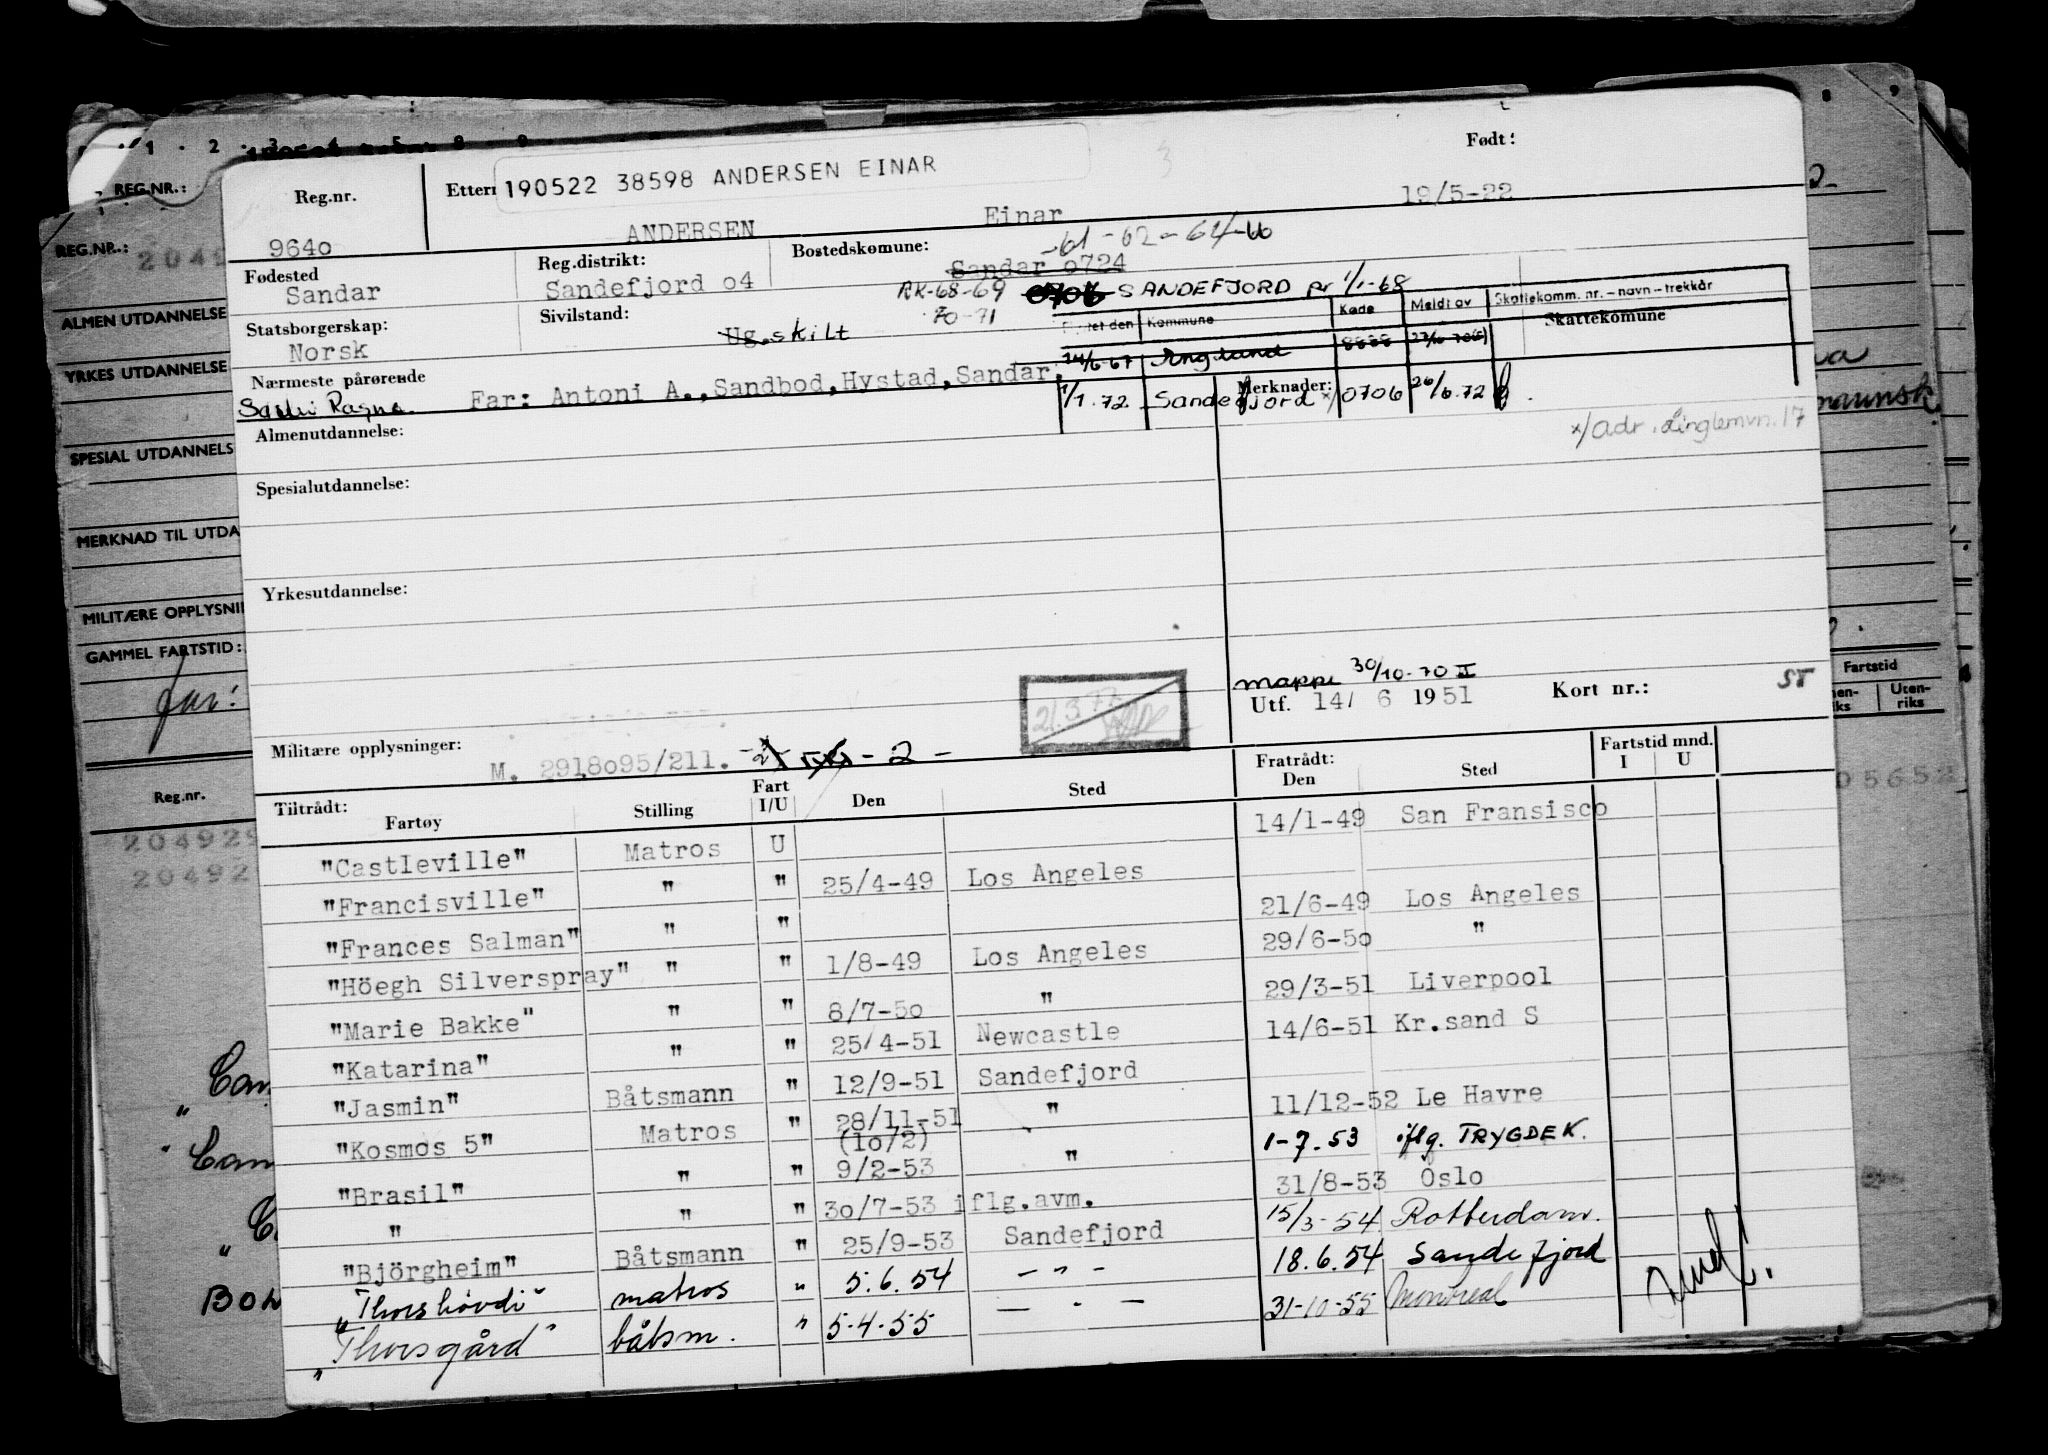 1 . 2 . 3 4 5 8 9
REG.NR.:
REG.NR.:
2049
ALMEN UTDANNELSE
YRKES UTDANNELSE
SPESIAL UTDANNELS
MERKNAD TIL UTDA
MILITÆRE OPPLYSNI
GAMMEL FARTSTID:
far:
Reg.nr.
204929
20492
Fartstid
Uten-
riks
05652
Reg.nr.
Ettern
190522 38598 ANDERSEN EINAR
Født:
9640
ANDERSEN
Einar
19/5-22
Fødested
Sandar
Reg.distrikt:
Sandefjord o4
Bostedskømune:
-61-62-64-66
Sandar o724
RK-68-69
70-71
0706 SANDEFJORD pr 1/1-68
Statsborgerskap:
Norsk
Sivilstand:
Ug.skilt
Flyttet den Kommune Kode Meldt av Skattekomm. nr. – navn – trekkår
Skattekomune
14/6-67 England 8888
1/1.72 Sandefjord x/ 0706 26/6.72
Merknader:
Nærmeste pårørende
Far: Antoni A.,Sandbod,Hystad,Sandar.
x/adr. Linglemvn. 17
Almenutdannelse:
Spesialutdannelse:
Yrkesutdannelse:
mappe 30/10-70 II
Utf. 14/ 6 1951
Kort nr.:
ST
Militære opplysninger:
M. 2918o95/211. - 2 -
Tiltrådt:
Fartøy Stilling Fart I/U Den Sted Fratrådt: Den Sted Fartstid mnd. I U
"CastIeville" Matros U 14/1-49 San Fransisco
"Francisville" " " 25/4-49 Los Angeles
"Frances Salman" " " 21/6-49 Los Angeles
"Höegh Silverspray" " " 1/8-49 Los Angeles 29/6-5o "
"Marie Bakke" " " 8/7-5o " 29/3-51 Liverpool
"Katarina" " " 25/4-51 Newcastle 14/6-51 Kr.sand S
"Jasmin" Båtsmann " 12/9-51 Sandefjord
"Kosmos 5" Matros " 28/11-51 " 11/12-52 Le Havre
(1o/2)
"Brasil" " " 9/2-53 " 1-7.53 iflg. TRYGDEK.
" " " 3o/7-53 iflg.avm. 31/8-53 Oslo
"Björgheim" Båtsmann " 25/9-53 Sandefjord 15/3-54 Rotterdam.
"Thorshövdi" matros " 5.6.54 - " - 18.6.54 Sandefjord
"Thorsgård" båtsm. " 5.4.55 - " - 31-10-55 Montreal